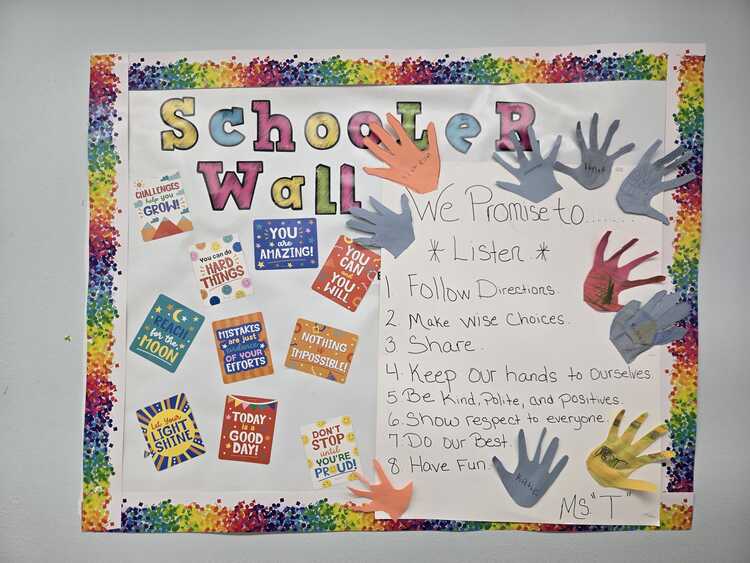 SchooLeR
Wall
CHALLENGES
help you
GROW!
You can do
HARD
THINGS
YOU
are
AMAZING!
YOU
CAN
and
YOU
WILL
REACH
for the
MOON
MISTAKES
are just
evidence
OF YOUR
EFFORTS
NOTHING
is
IMPOSSIBLE!
Let Your
LIGHT
SHINE
TODAY
is a
GOOD
DAY!
DON'T
STOP
until
YOU'RE
PROUD!
We Promise to.......
* Listen *
1. Follow Directions.
2. Make Wise Choices.
3 Share.
4. Keep Our hands to Ourselves.
5. Be Kind, Polite, and positives.
6. Show respect to everyone.
7. Do Our Best.
8 Have Fun.
Ms. "T"